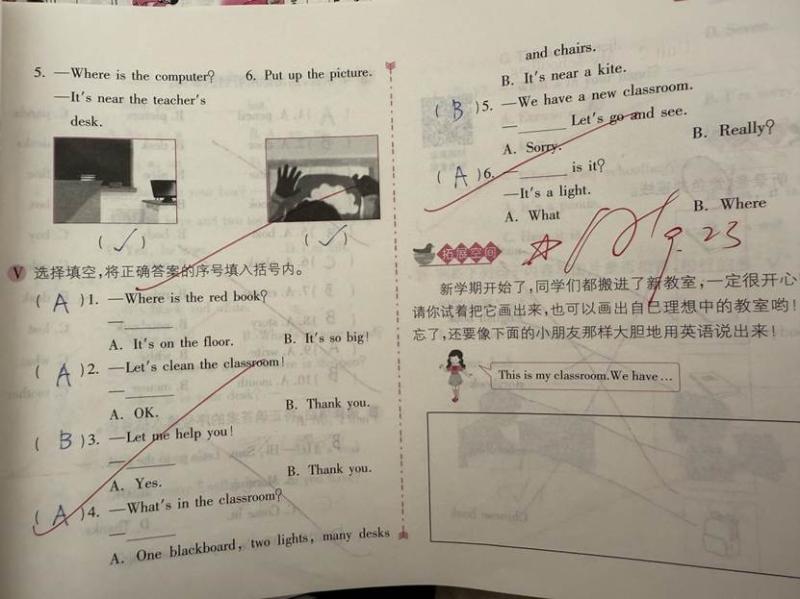 5. —Where is the computer?
—It's near the teacher's
desk.
6. Put up the picture.
( ✓ )
( ✓ )
V 选择填空,将正确答案的序号填入括号内。
( A )1. —Where is the red book?
—______
A. It's on the floor. B. It's so big!
( A )2. —Let's clean the classroom!
—______
A. OK. B. Thank you.
( B )3. —Let me help you!
—______
A. Yes. B. Thank you.
( A )4. —What's in the classroom?
—______
A. One blackboard, two lights, many desks
and chairs.
B. It's near a kite.
( B )5. —We have a new classroom.
—______ Let's go and see.
A. Sorry. B. Really?
( A )6. —______ is it?
—It's a light.
A. What B. Where
9.23
拓展空间
新学期开始了,同学们都搬进了新教室,一定很开心
请你试着把它画出来,也可以画出自己理想中的教室哟!
忘了,还要像下面的小朋友那样大胆地用英语说出来!
This is my classroom.We have ...